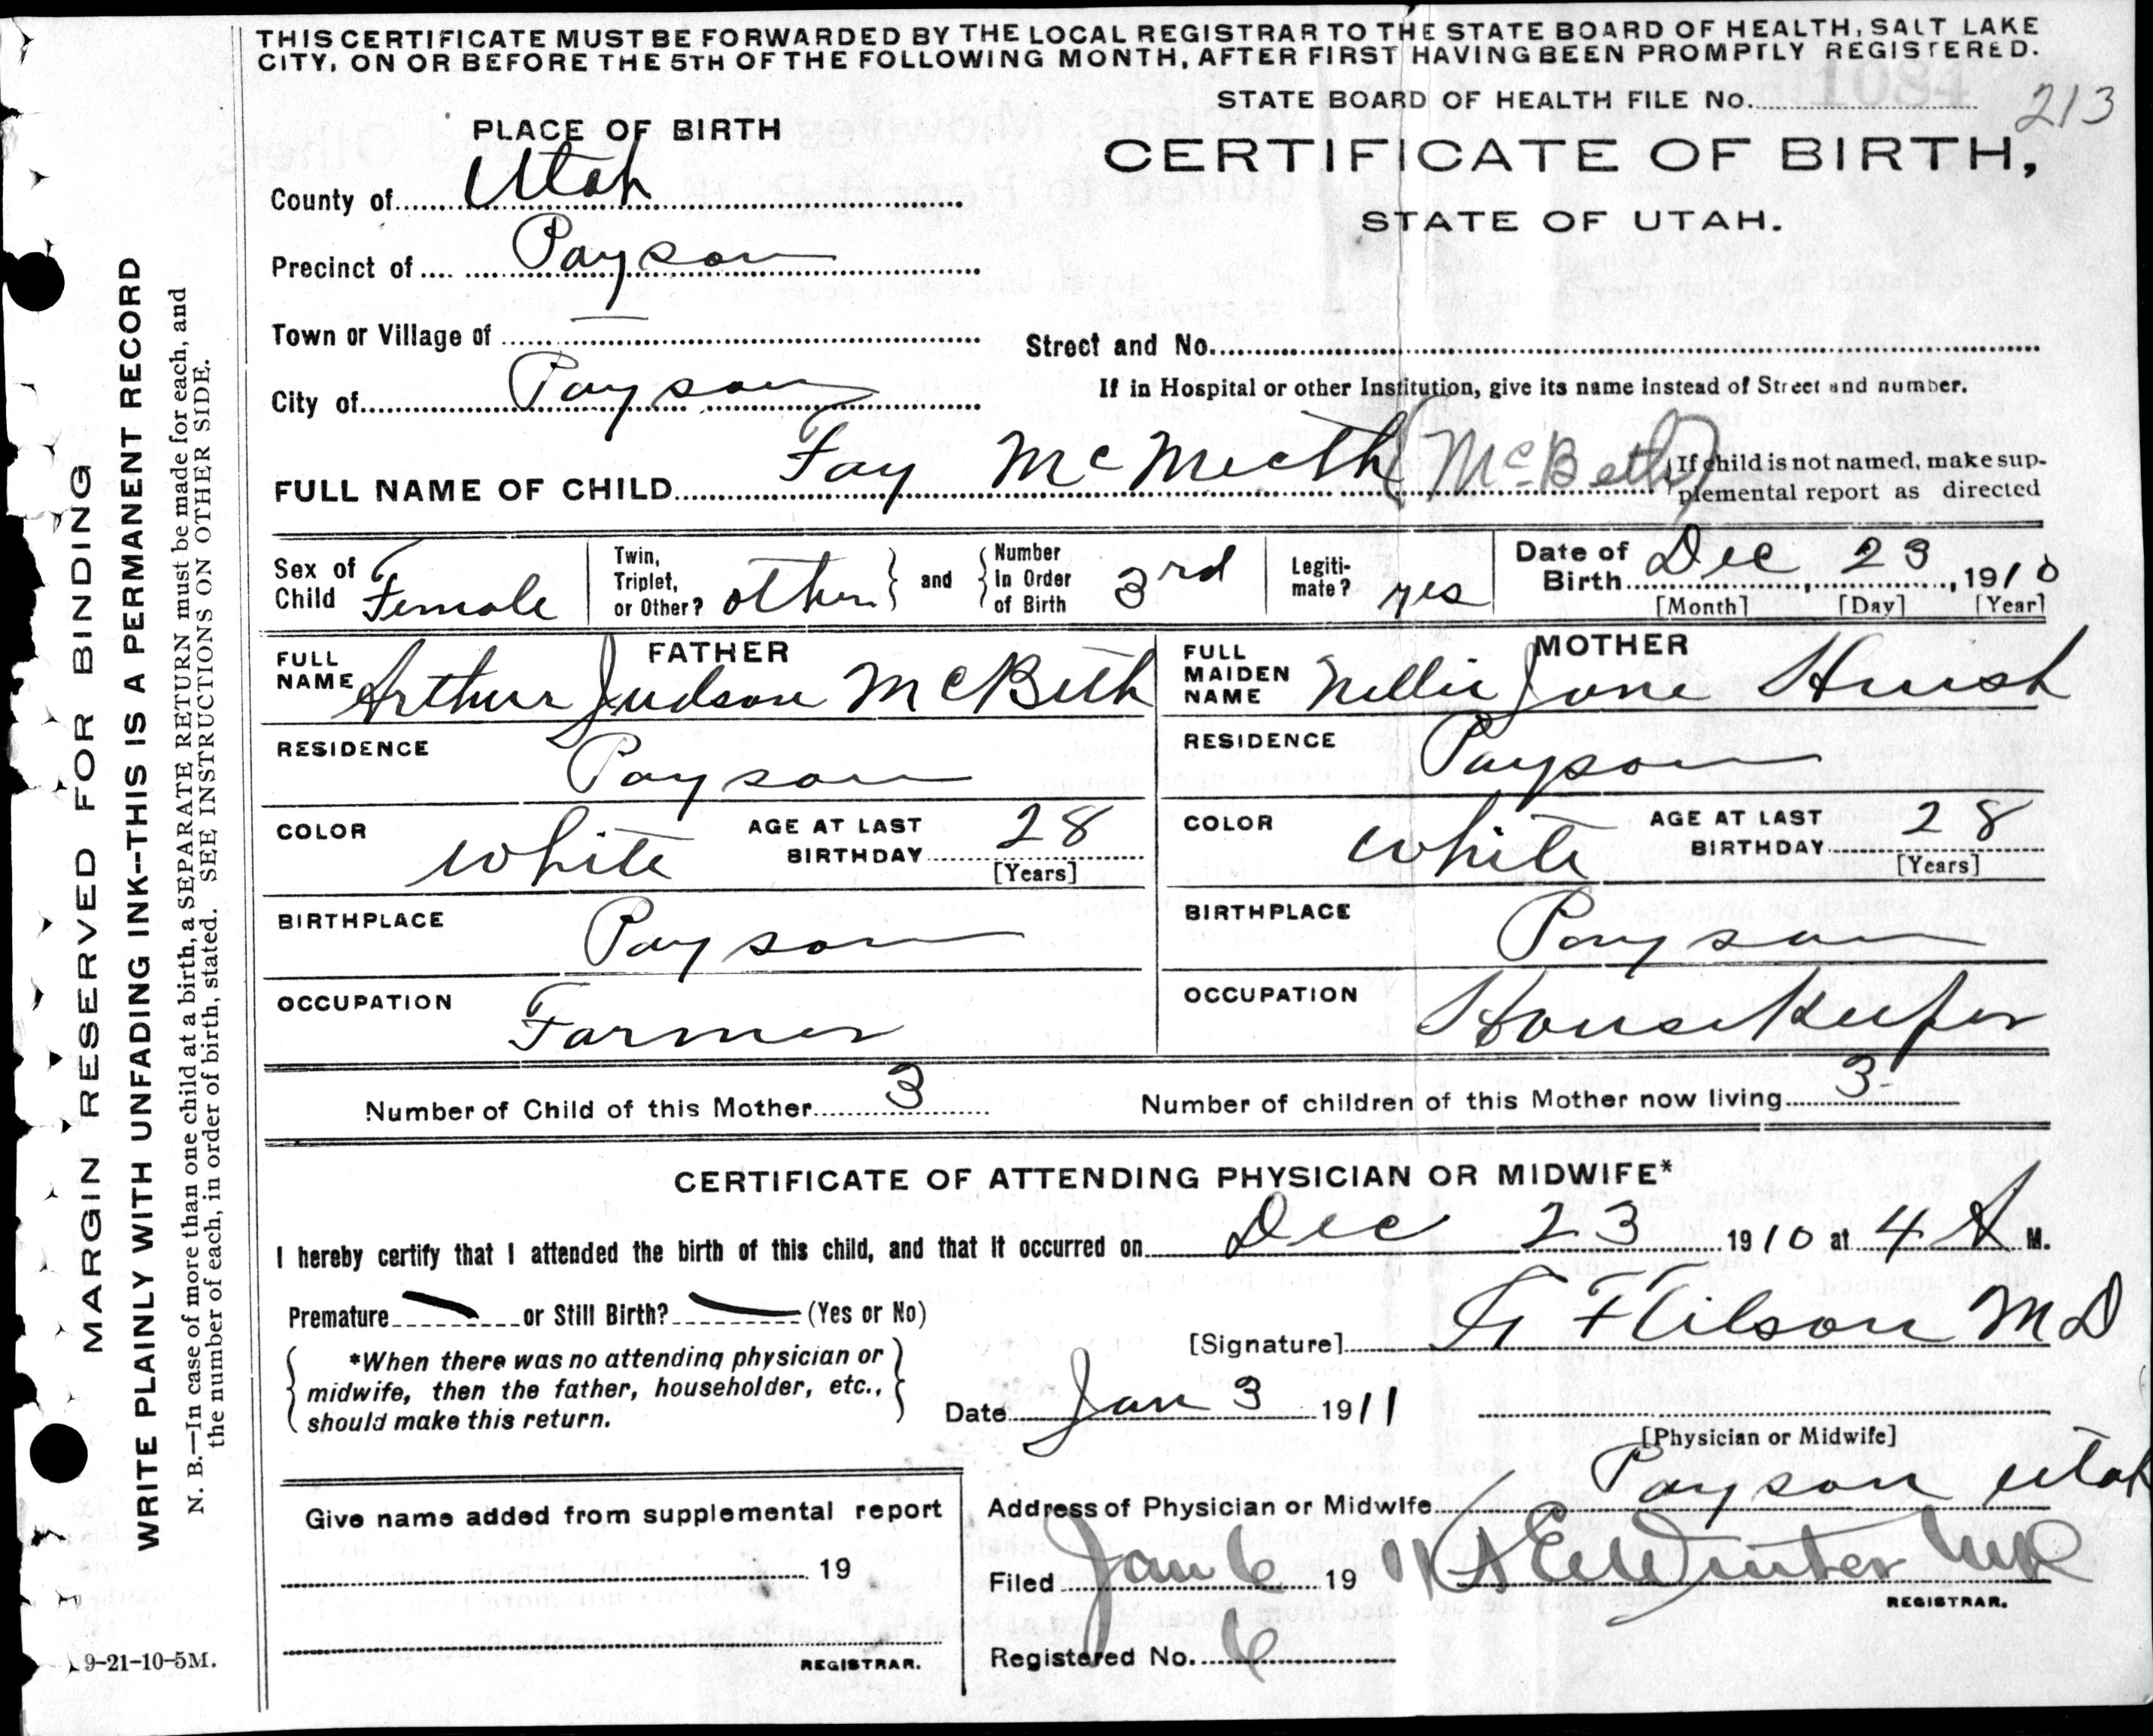 THIS CERTIFICATE MUST BE FORWARDED BY THE LOCAL REGISTRAR TO THE STATE BOARD OF HEALTH, SALT LAKE
CITY, ON OR BEFORE THE 5TH OF THE FOLLOWING MONTH, AFTER FIRST HAVING BEEN PROMPTLY REGISTERED.
STATE BOARD OF HEALTH FILE No. 1084 213
PLACE OF BIRTH
CERTIFICATE OF BIRTH,
STATE OF UTAH.
County of Utah
Precinct of Payson
Town or Village of —
Street and No.
City of Payson
If in Hospital or other Institution, give its name instead of Street and number.
FULL NAME OF CHILD Fay McMeeth (McBeth)
If child is not named, make sup-
plemental report as directed
Sex of Child Female
Twin, Triplet, or Other? other and Number In Order of Birth 3rd
Legiti-mate? yes
Date of Birth Dec 23, 1910
[Month] [Day] [Year]
FATHER
FULL NAME Arthur Judson McBeth
RESIDENCE Payson
COLOR White AGE AT LAST BIRTHDAY 28
[Years]
BIRTHPLACE Payson
OCCUPATION Farmer
MOTHER
FULL MAIDEN NAME Nellie Jane Huish
RESIDENCE Payson
COLOR White AGE AT LAST BIRTHDAY 28
[Years]
BIRTHPLACE Payson
OCCUPATION House Keeper
Number of Child of this Mother 3 Number of children of this Mother now living 3
CERTIFICATE OF ATTENDING PHYSICIAN OR MIDWIFE*
I hereby certify that I attended the birth of this child, and that it occurred on Dec 23 1910 at 4 A M.
Premature — or Still Birth? — (Yes or No)
*When there was no attending physician or
midwife, then the father, householder, etc.,
should make this return.
[Signature] M D
Date Jan 3 1911
[Physician or Midwife]
Address of Physician or Midwife Payson Utah
Give name added from supplemental report
19
REGISTRAR.
Filed Jan 6 1911 Winter
REGISTRAR.
Registered No. 6
9-21-10-5M.
MARGIN RESERVED FOR BINDING
WRITE PLAINLY WITH UNFADING INK--THIS IS A PERMANENT RECORD
N. B.—In case of more than one child at a birth, a SEPARATE RETURN must be made for each, and
the number of each, in order of birth, stated. SEE INSTRUCTIONS ON OTHER SIDE.